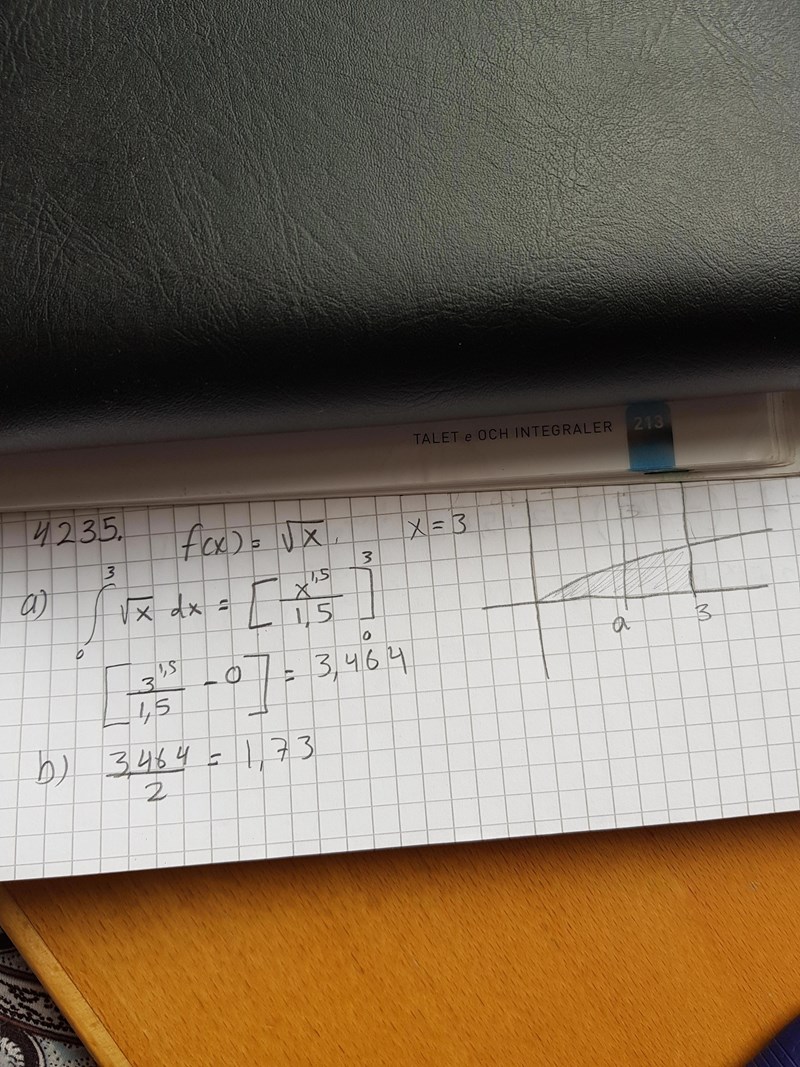 TALET e OCH INTEGRALER 213
4235. f(x) = √x. x = 3
a) ∫₀³ √x dx = [x^1,5 / 1,5]₀³
[3^1,5 / 1,5 - 0] = 3,464
b) 3,464 / 2 = 1,73
a 3